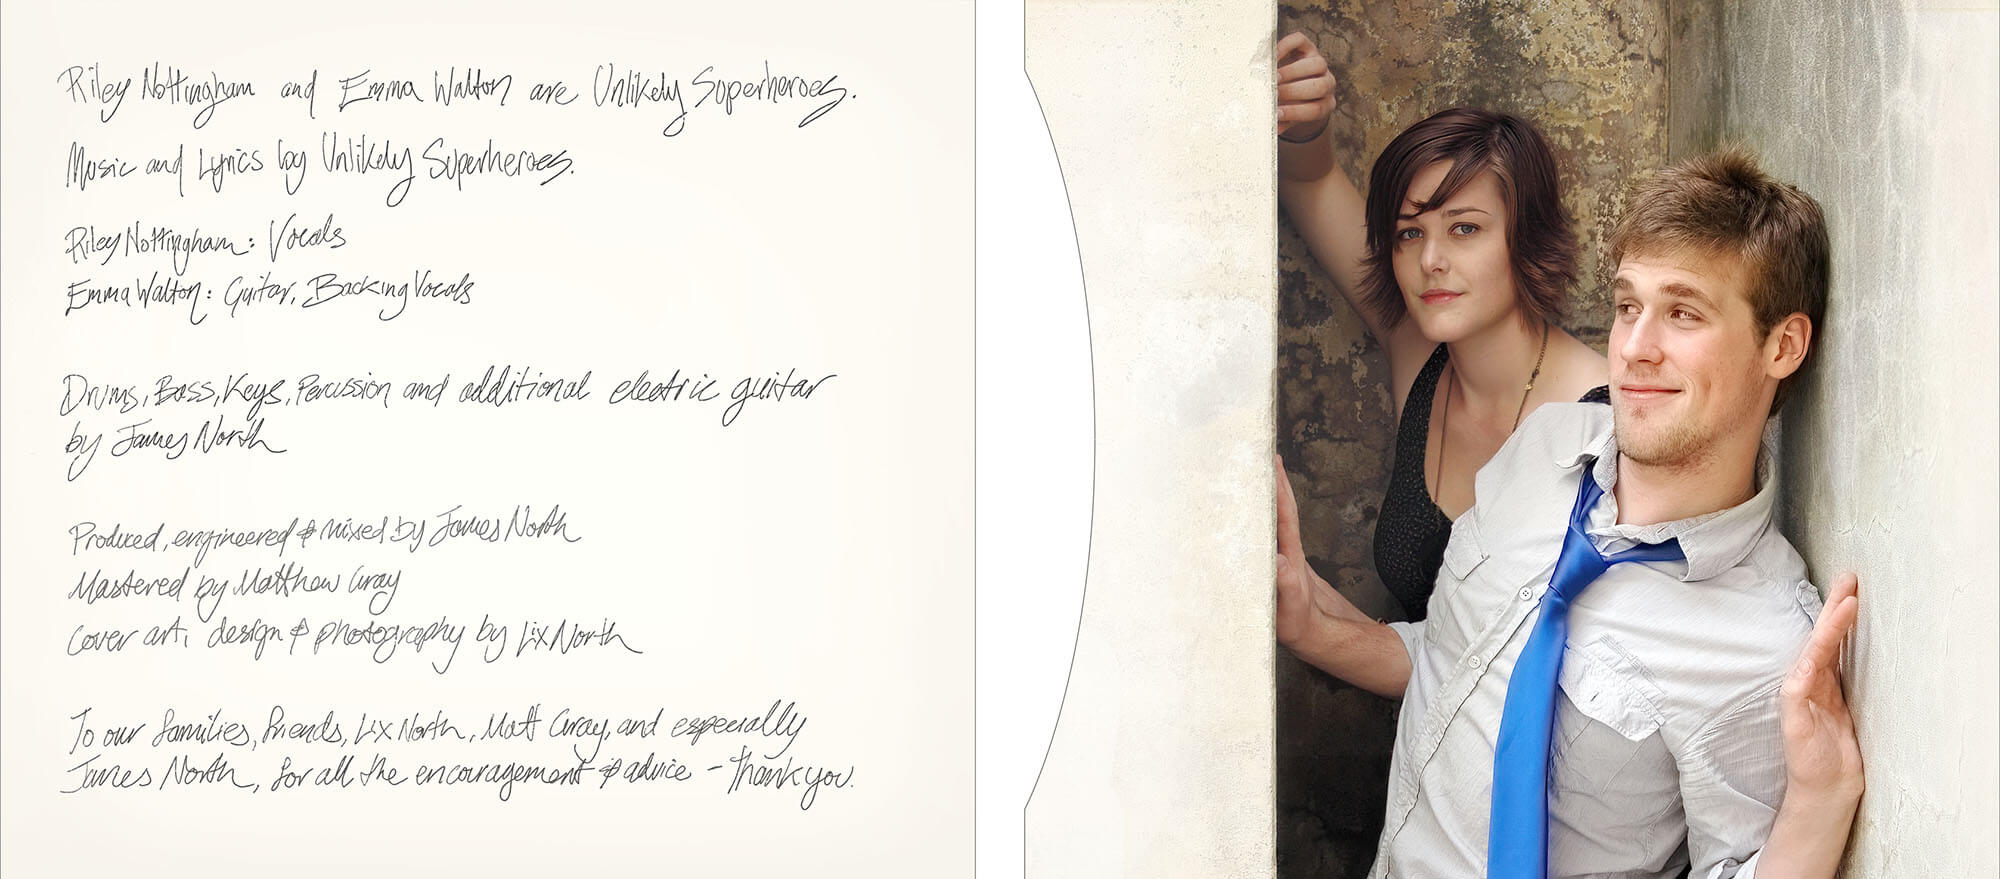 Riley Nottingham and Emma Walton are Unlikely Superheroes.
Music and Lyrics by Unlikely Superheroes.
Riley Nottingham: Vocals
Emma Walton: Guitar, Backing Vocals
Drums, Bass, Keys, Percussion and additional electric guitar
by James North
Produced, engineered & mixed by James North
Mastered by Matthew Gray
Cover art, design & photography by Lix North
To our families, friends, Lix North, Matt Gray, and especially
James North, for all the encouragement & advice - thank you.